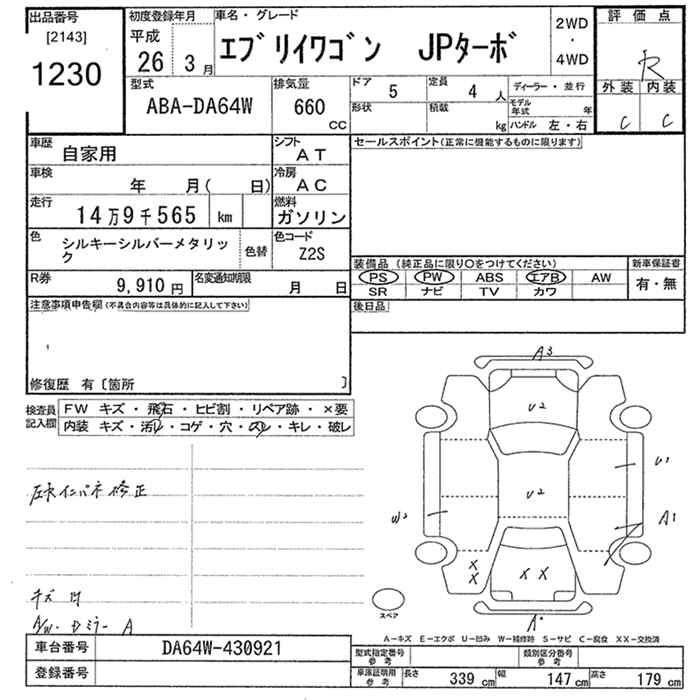 出品番号
[2143]
1230
初度登録年月
平成
26年 3月
車名・グレード
エブリイワゴン JPターボ
2WD
・
4WD
評価点
R
外装 内装
C C
型式
ABA-DA64W
排気量
660
CC
ドア 5
定員 4 人
ディーラー・並行
形状
積載
kg
モデル年式 年
ハンドル 左・右
車歴 自家用
シフト AT
車検 年 月( 日)
冷房 AC
走行 14万9千565 km
燃料 ガソリン
色 シルキーシルバーメタリック
色替
色コード Z2S
R券 9,910円
名変通知期限 月 日
セールスポイント(正常に機能するものに限ります)
装備品(純正品に限り〇をつけてください)
PS PW ABS エアB AW
SR ナビ TV カワ
新車保証書
有・無
後日品
注意事項申告欄(不具合内容等は具体的に記入して下さい)
修復歴 有〔箇所 〕
検査員記入欄
FW キズ・飛石・ヒビ割・リペア跡・×要
内装 キズ・汚レ・コゲ・穴・スレ・キレ・破レ
左クォインパネ修正
キズ 凹
A/W・Dミラー A
A3
U2
U2
U1
W2
A1
X
X
X X
A
スペア
A-キズ E-エクボ U-凹み W-補修跡 S-サビ C-腐食 XX-交換済
車台番号 DA64W-430921
登録番号
型式指定番号 参考
類別区分番号 参考
車庫証明用 参考
長さ 339 cm 幅 147 cm 高さ 179 cm